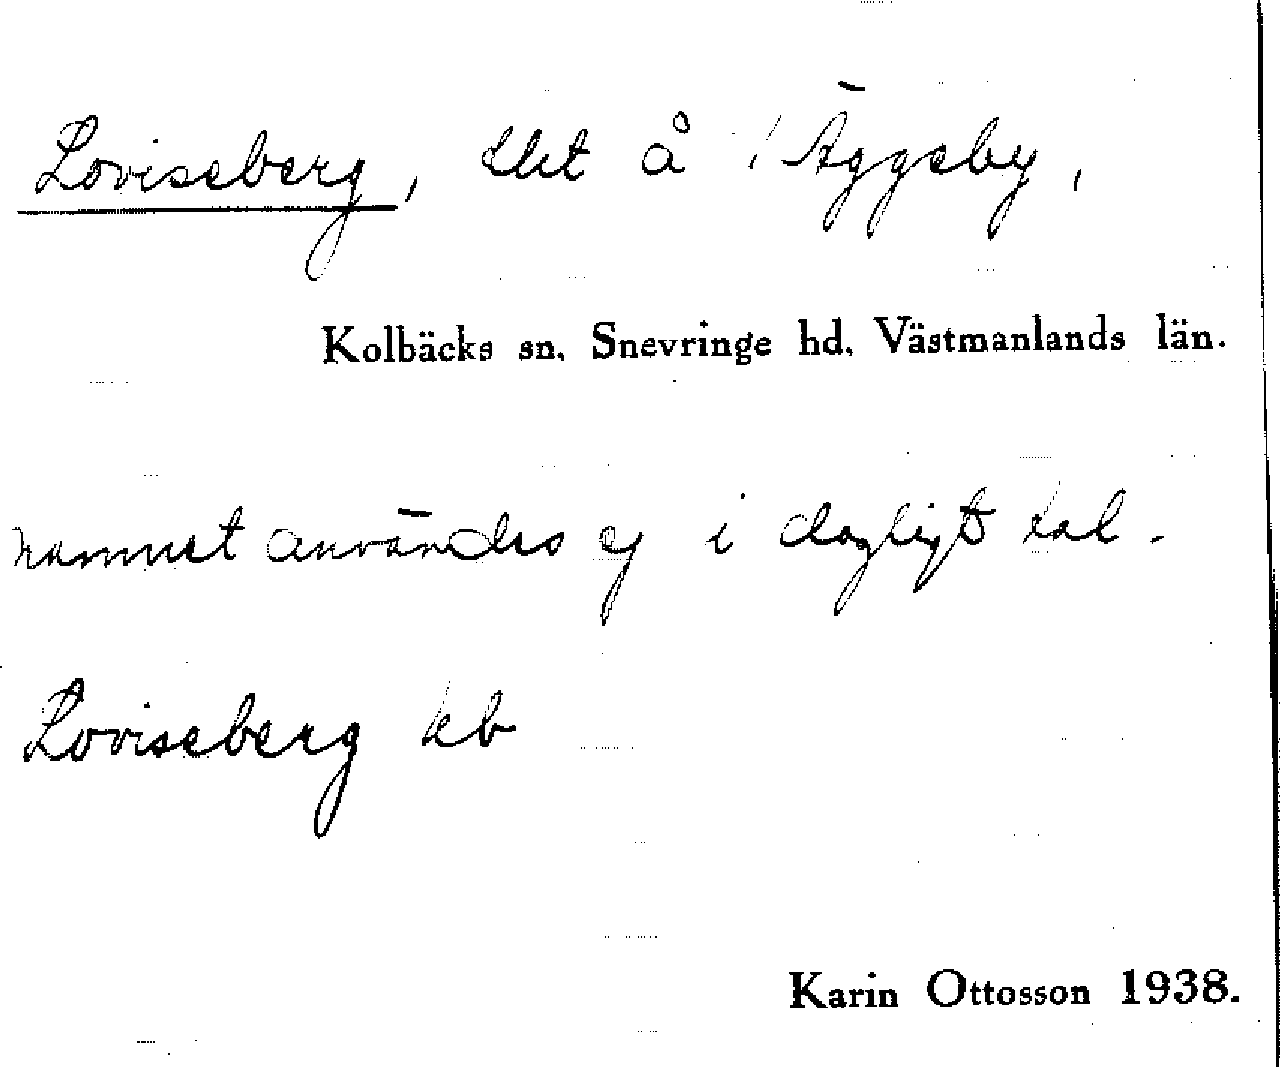 Loviseberg, tlet å / Äggeby,
Kolbäcks sn. Snevringe hd. Västmanlands län.
namnet användes ej i dagligt tal.
Loviseberg kb
Karin Ottosson 1938.